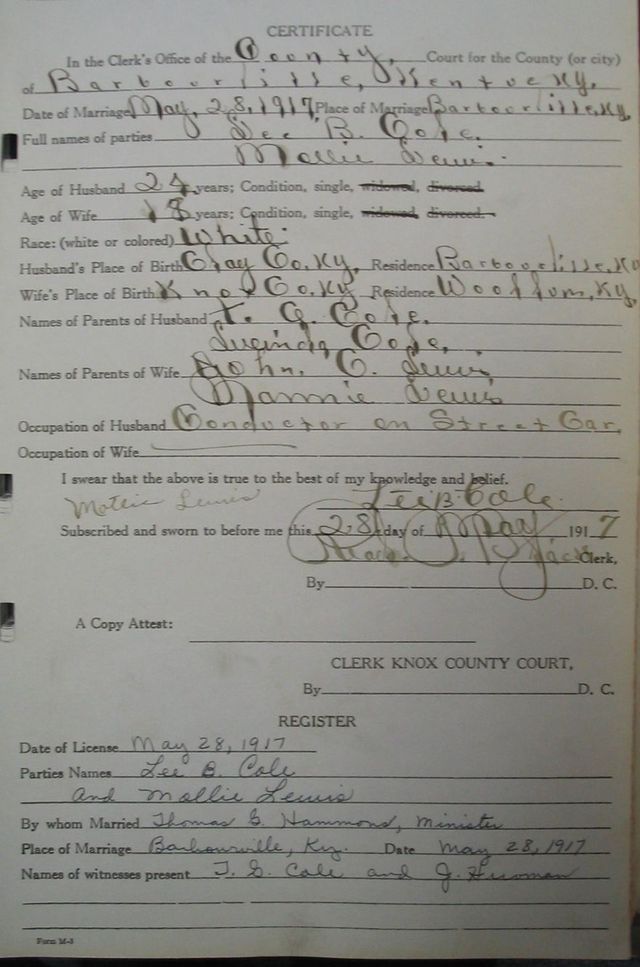 CERTIFICATE
In the Clerk's Office of the County, Court for the County (or city)
of Barbourville, Kentucky,
Date of Marriage May, 28, 1917, Place of Marriage Barbourville, Ky,
Full names of parties Lee B. Cole.
Mollie Lewis.
Age of Husband 24 years; Condition, single, widowed, divorced.
Age of Wife 18 years; Condition, single, widowed, divorced.
Race: (white or colored) White.
Husband's Place of Birth Clay Co, Ky, Residence Barbourville, Ky
Wife's Place of Birth Knox Co, Ky Residence Woollum, Ky,
Names of Parents of Husband T. G. Cole,
Lucinda Cole,
Names of Parents of Wife John, C. Lewis
Nannie Lewis
Occupation of Husband Conductor on Street Car,
Occupation of Wife
I swear that the above is true to the best of my knowledge and belief.
Mollie Lewis Lee B Cole.
Subscribed and sworn to before me this 28 day of May 1917
Clerk,
By D. C.
A Copy Attest:
CLERK KNOX COUNTY COURT,
By D. C.
REGISTER
Date of License May 28, 1917
Parties Names Lee B. Cole
and Mollie Lewis
By whom Married Thomas G. Hammond, Minister
Place of Marriage Barbourville, Ky. Date May 28, 1917
Names of witnesses present T. G. Cole and J.
Form M-3